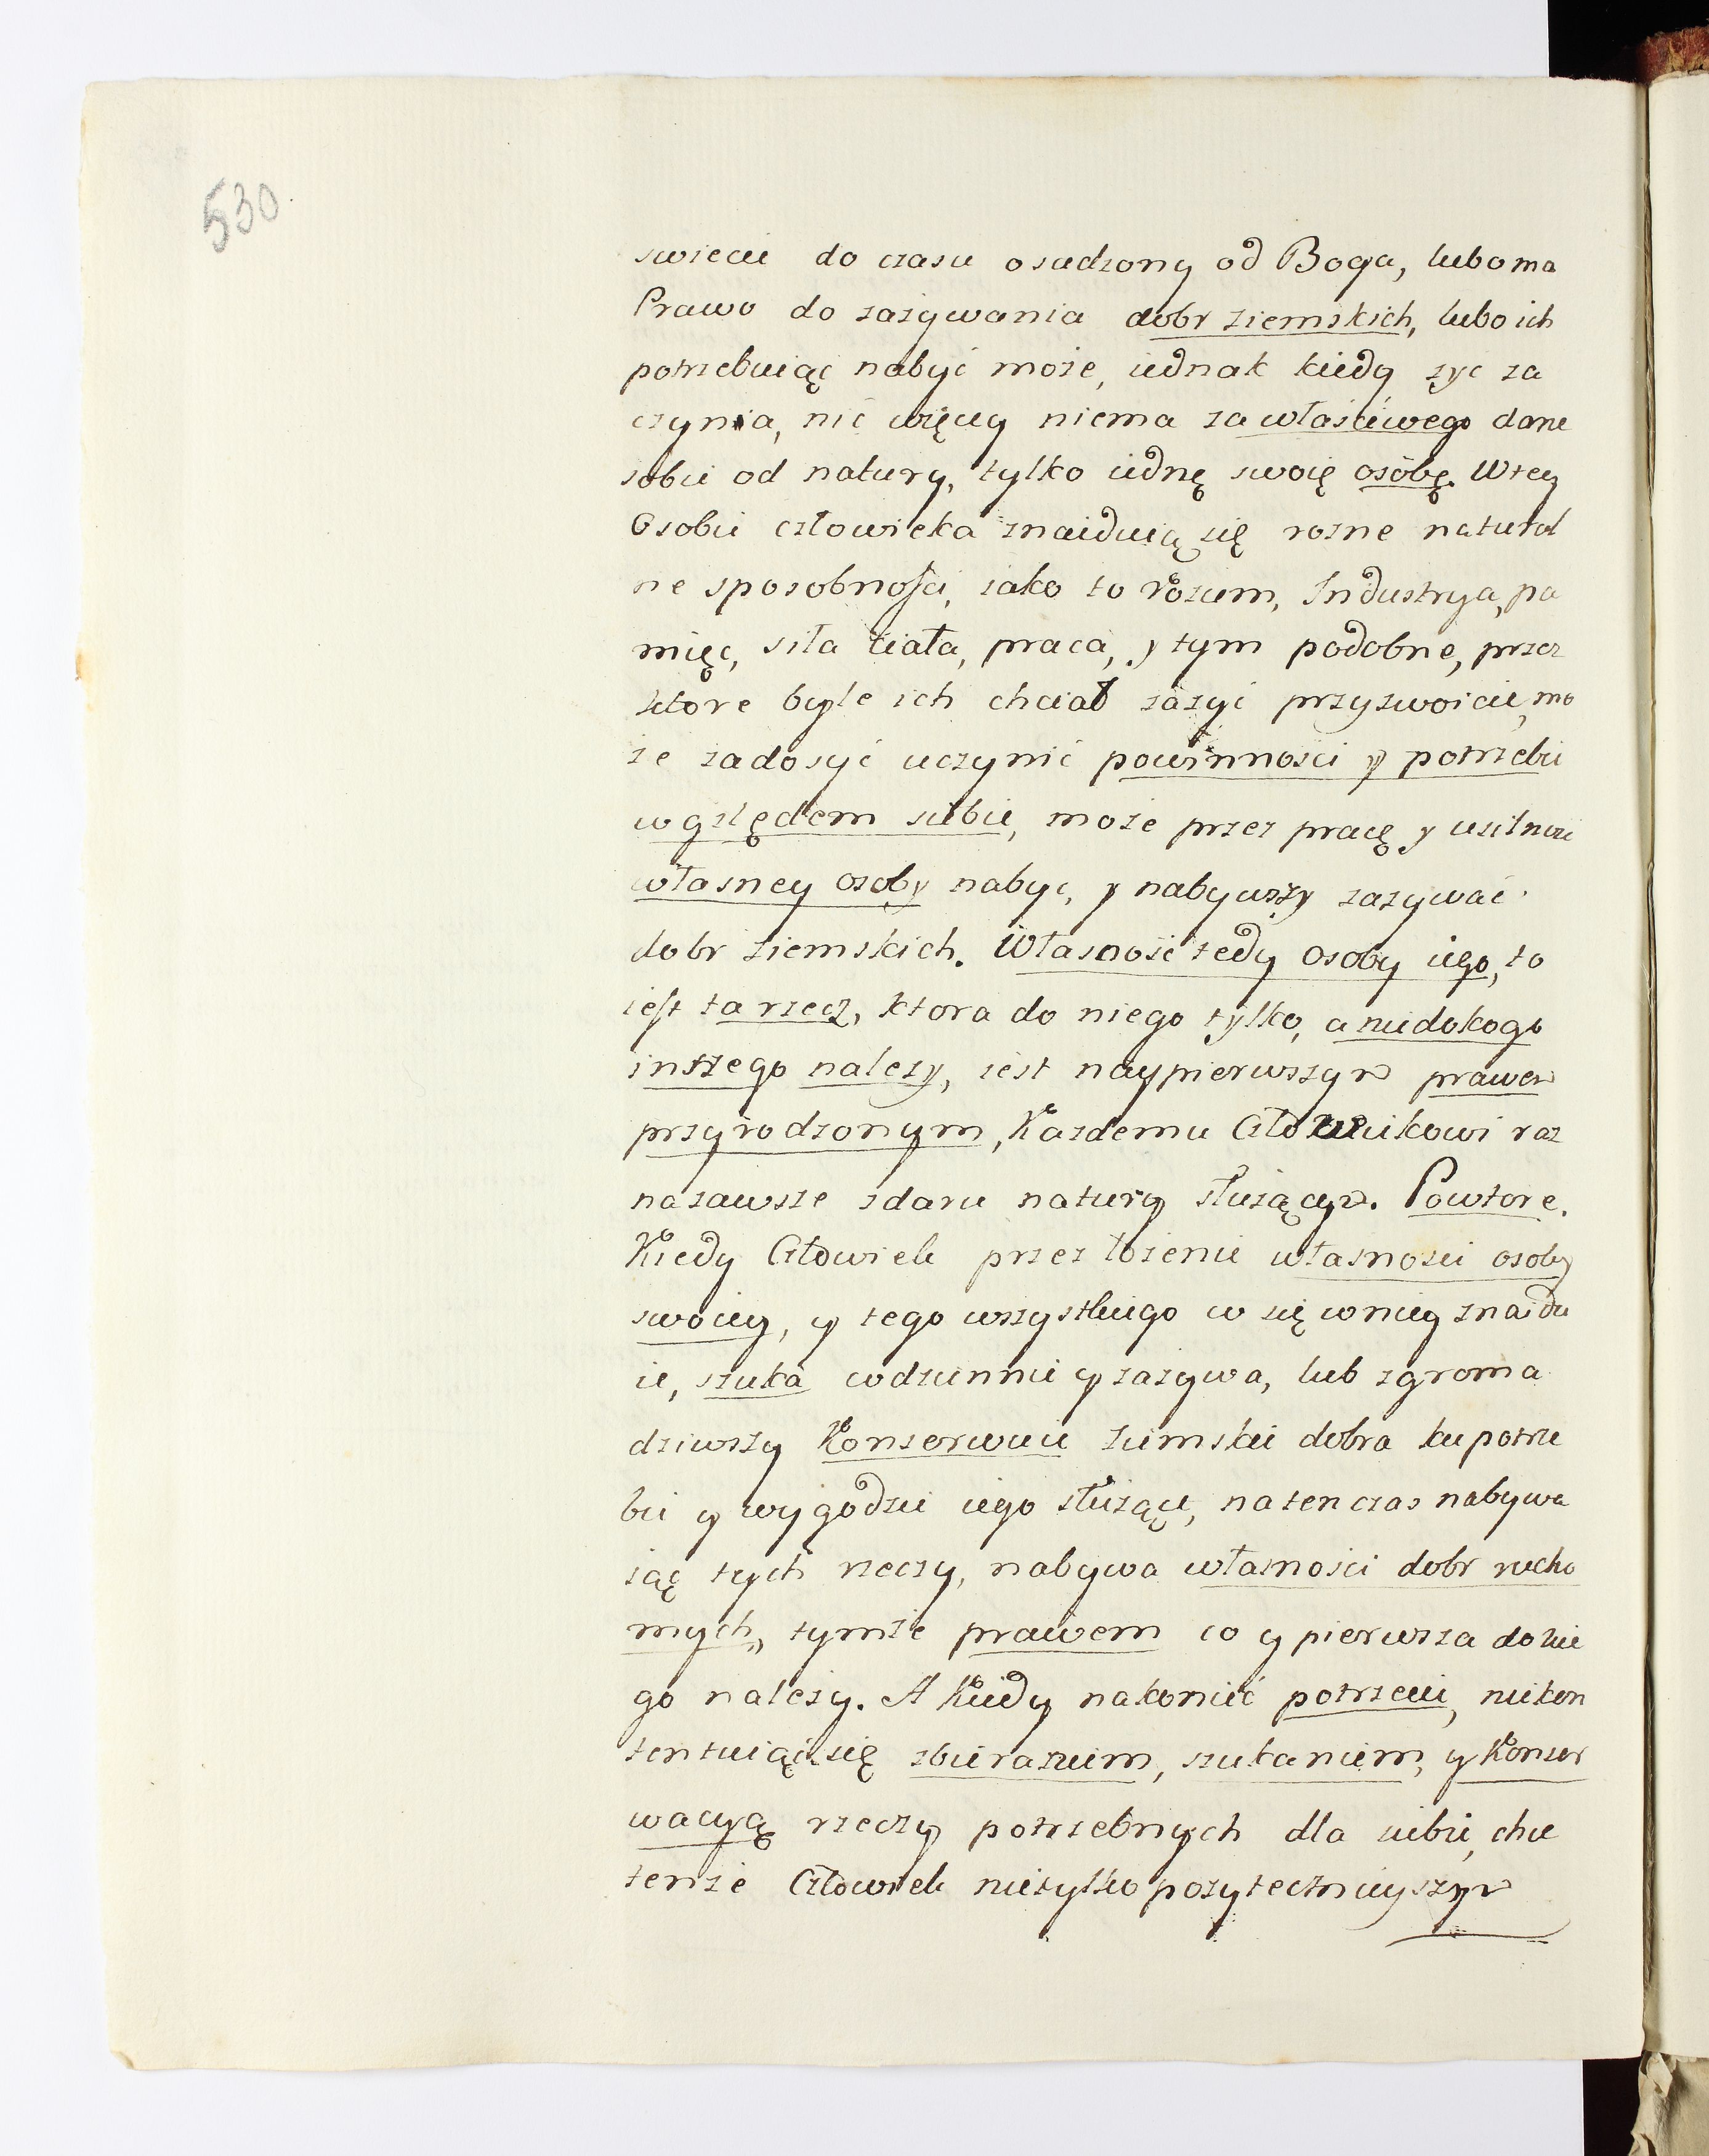 530
swiecie do czasu osadzony od Boga, lubo ma
Prawo do zazywania dobr ziemskich, lubo ich
potrzebuiąc nabyć może, iednak kiedy zyc za
czynia, nic więcey niema za właściwego dane
sobie od natury, tylko iednę swoię osobę. Wtey
Osobie człowieka znaiduią się rozne natural
ne sposobności, iako to rozum, Industrya, pa
mięc, siła ciała, praca, y tym podobne, przez
ktore byle ich chciał zażyć przyzwoicie, mo
ze zadosyć uczynić powinności y potrzebie
względem siebie, może przez pracę y usilnosc
własney osoby nabyc, y nabywszy zazywać
dobr ziemskich. Własność tedy osoby iego, to
iest ta rzecz, ktora do niego tylko, a niedokogo
inszego nalezy, iest naypierwszym prawem
przyrodzonym, Kazdemu Człowiekowi raz
nazawsze zdaru natury służącym. Powtore.
Kiedy Człowiek przez łożenie własnosci osoby
swoiey, y tego wszystkiego co się wniey znaidu
ie, szuka codziennie y zazywa, lub zgroma
dziwszy Konserwuie ziemskie dobra ku potrze
bie y wygodzie iego służące, natenczas nabywa
iąc tych rzeczy, nabywa własności dobr rucho
mych, tymże prawem co y pierwsza do nie
go nalezy. A Kiedy nakoniec potrzecie, niekon
tentuiąc się zbieraniem, szukaniem, y Konser
wacyą rzeczy potrzebnych dla siebie, chce
tenże Człowiek nietylko pozytecznieyszym